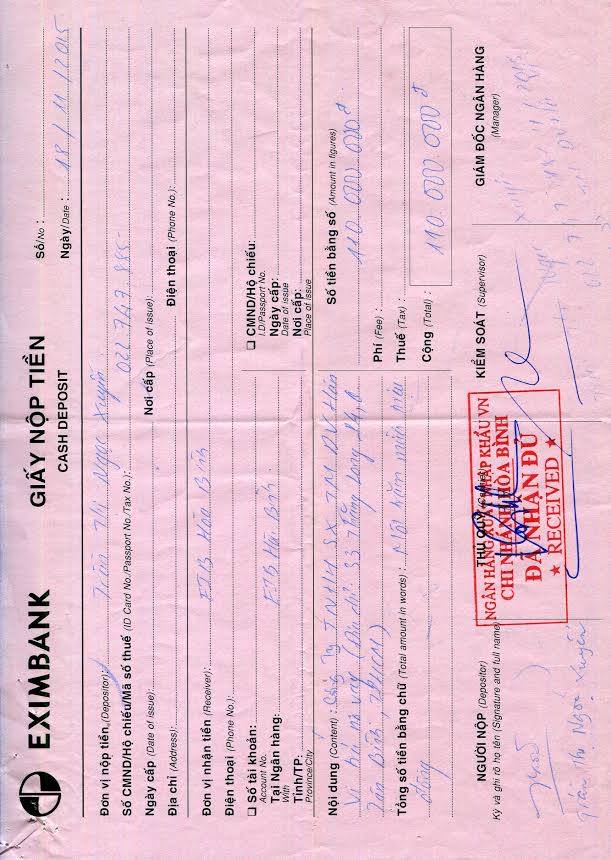 EXIMBANK
GIẤY NỘP TIỀN
CASH DEPOSIT
Số/No :
Ngày/Date : 18 / 11 / 2015
Đơn vị nộp tiền (Depositor): Trần Thị Ngọc Xuyến
Số CMND/Hộ chiếu/Mã số thuế (ID Card No./Passport No./Tax No.): 022 747 885
Ngày cấp (Date of issue): Nơi cấp (Place of issue):
Địa chỉ (Address): Điện thoại (Phone No.):
Đơn vị nhận tiền (Receiver): EIB Hòa Bình
Điện thoại (Phone No.):
Số tài khoản:
Account No.
Tại Ngân hàng: EIB Hòa Bình
With
Tỉnh/TP:
Province/City
CMND/Hộ chiếu:
I.D/Passport No.
Ngày cấp:
Date of issue
Nơi cấp:
Place of issue
Nội dung (Content) : Công Ty TNHH SX TM DV Hàn
Vi trả nợ vay (Địa chỉ: 33 Thăng Long, P4, Q
Tân Bình, TPHCM)
Tổng số tiền bằng chữ (Total amount in words) : Một trăm mười triệu
đồng
Số tiền bằng số (Amount in figures)
110 000 000 đ
Phí (Fee) :
Thuế (Tax) :
Cộng (Total) : 110 000 000 đ
NGƯỜI NỘP (Depositor)
Ký và ghi rõ họ tên (Signature and full name)
Trần Thị Ngọc Xuyến
THỦ QUỸ
KIỂM SOÁT (Supervisor)
GIÁM ĐỐC NGÂN HÀNG
(Manager)
NGÂN HÀNG XUẤT NHẬP KHẨU VN
CHI NHÁNH HÒA BÌNH
ĐÃ NHẬN ĐỦ
★ RECEIVED ★